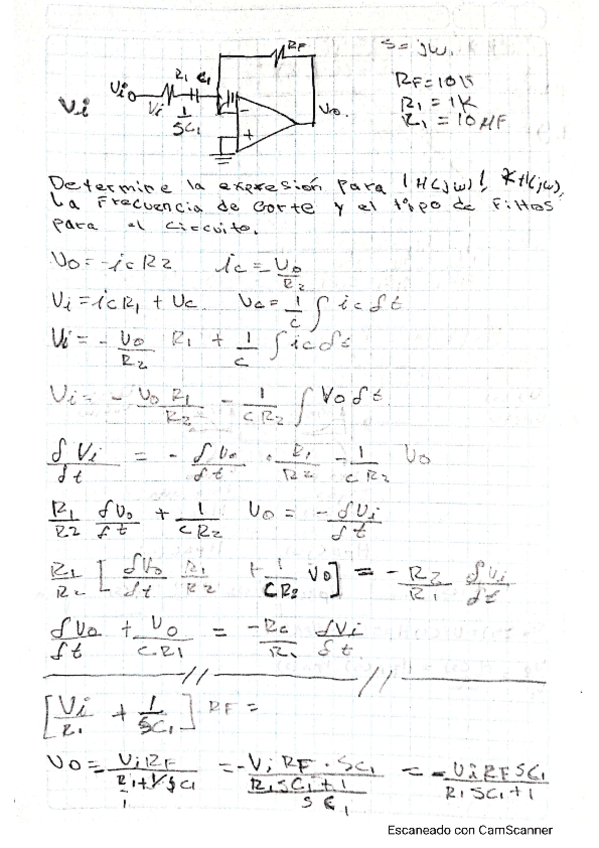 S = jω.
RF
R1 C1
Vi
Vi
Vi
1/SC1
-
+
Vo.
RF = 10K
R1 = 1K
R1 = 10 μF
Determine la expresión para |H(jω)|, ∡H(jω),
La Frecuencia de Corte y el tipo de Filtros
para el circuito.
Vo = -ic R2 ic = Vo/R2
Vi = ic R1 + Vc Vc = 1/C ∫ ic dt
Vi = - Vo/R2 R1 + 1/C ∫ ic dt
Vi = - Vo R1/R2 - 1/CR2 ∫ Vo dt
dVi/dt = - dVo/dt · R1/R2 - 1/CR2 Vo
R1/R2 dVo/dt + 1/CR2 Vo = - dVi/dt
R1/R2 [ dVo/dt R1/R2 + 1/CR2 Vo ] = - R2/R1 dVi/dt
dVo/dt + Vo/CR1 = -R2/R1 dVi/dt
[ Vi/R1 + 1/SC1 ] RF =
Vo = Vi RF/R1 + 1/SC1 = - Vi RF · SC1/R1 SC1 + 1 = - Vi RF SC1/R1 SC1 + 1
Escaneado con CamScanner